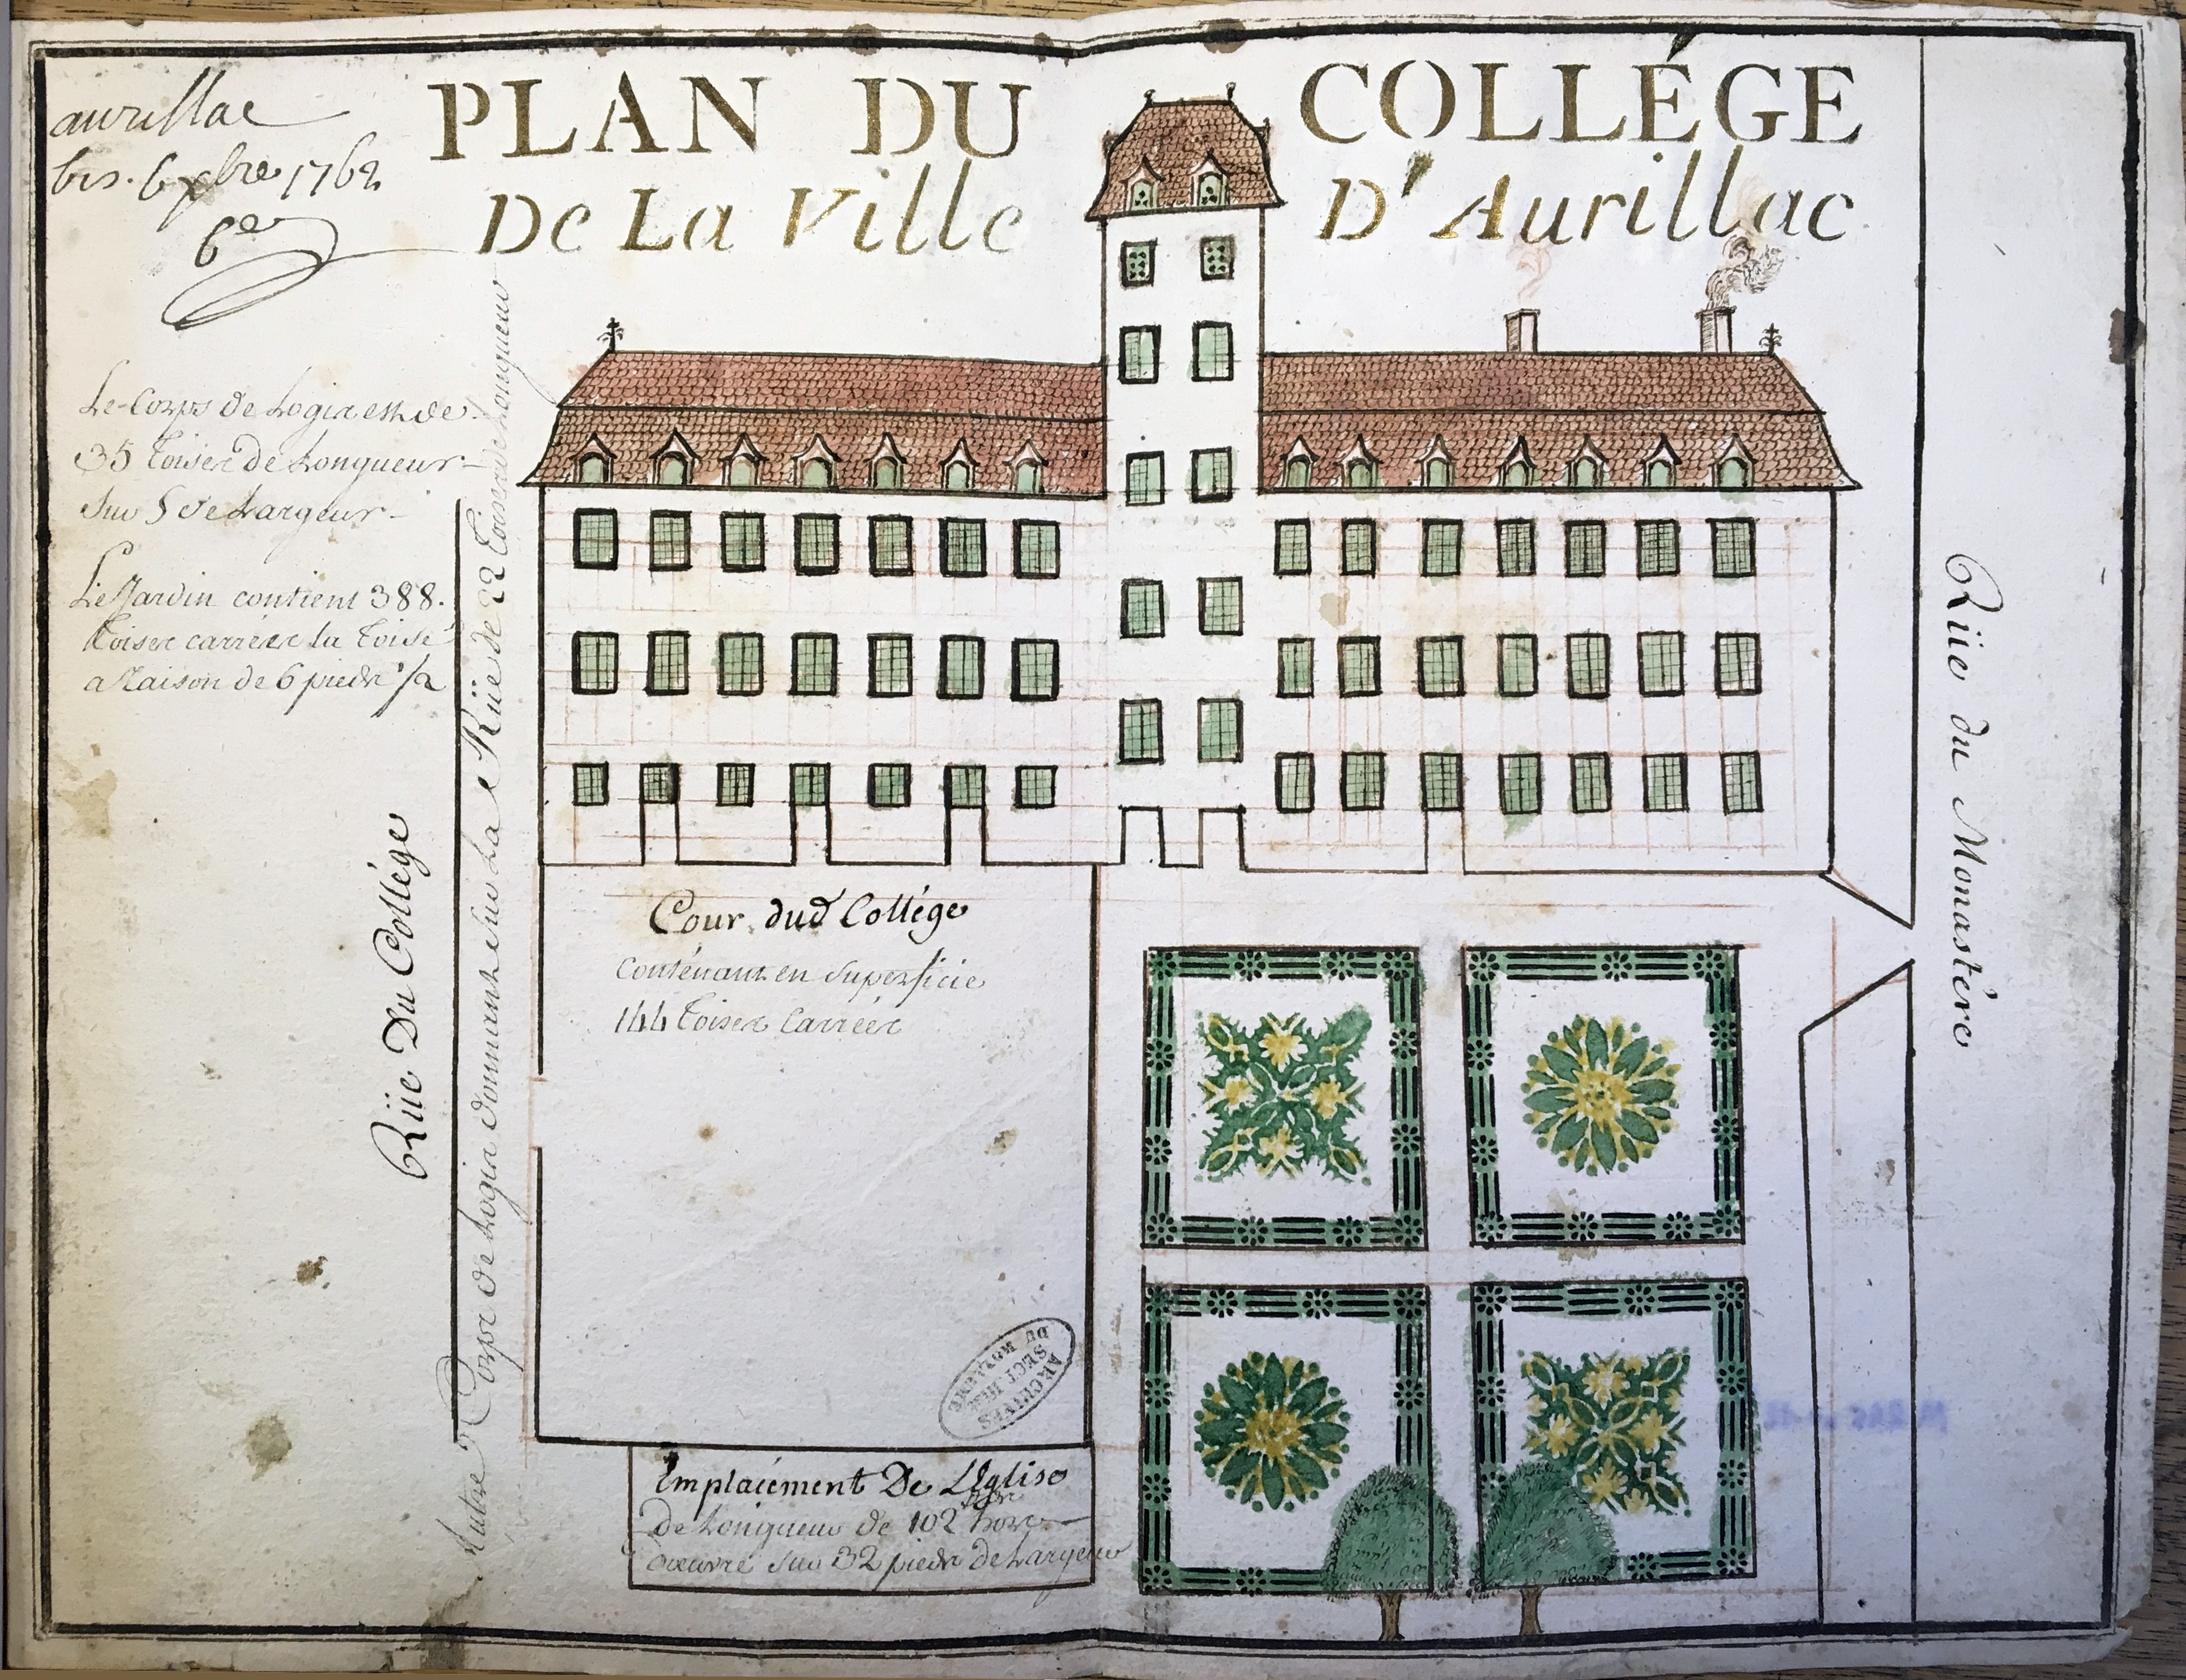 PLAN DU COLLÉGE
De La Ville D'Aurillac
aurillac
bis. 6 xbre 1762
6e
Le Corps de Logis est de
35 toises de Longueur
sur 5 de Largeur
Le Jardin contient 388.
toises carrées la toise
a raison de 6 pieds 1/2
Rüe Du Collége
Autre Corps de Logis donnant sur La Rüe de 22 toises de Longueur
Cour dud Collége
Contenant en superficie
144 toises Carrées
Emplaiement De L'Eglise
de Longueur de 102 hors
oeuvre sur 32 pieds De Largeur
Rüe du Monastère
ARCHIVES
SECT HIS
DU ROYAUME